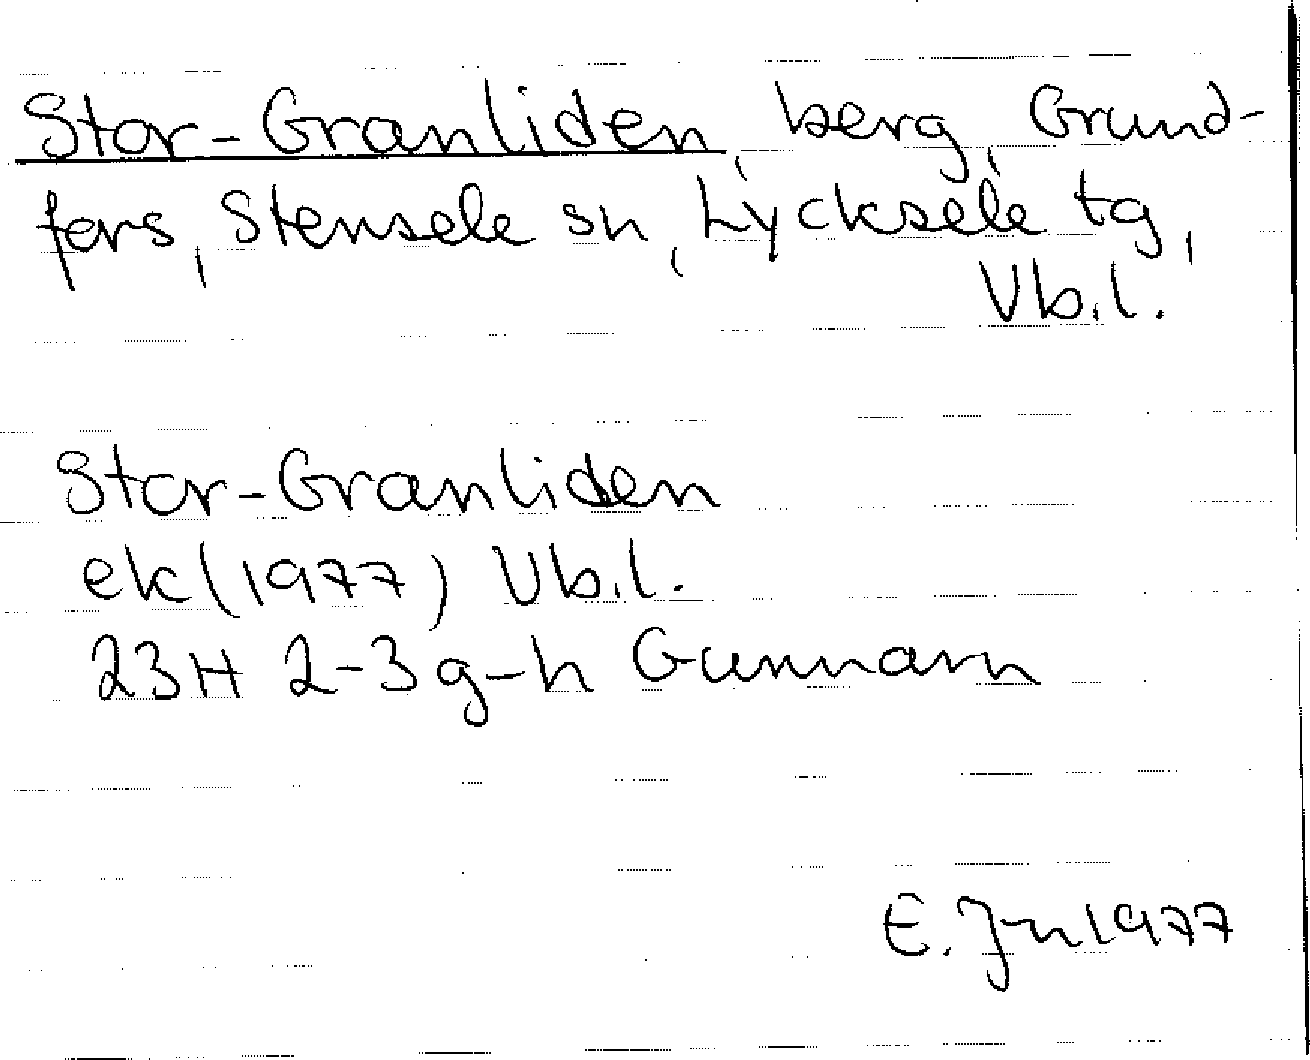 Stor-Granliden, berg, Grund-
fors, Stensele sn, Lycksele tg,
Vb.l.
Stor-Granliden
ek (1977) Vb.l.
23H 2-3 g-h Gunnarn
E. Jn 1977